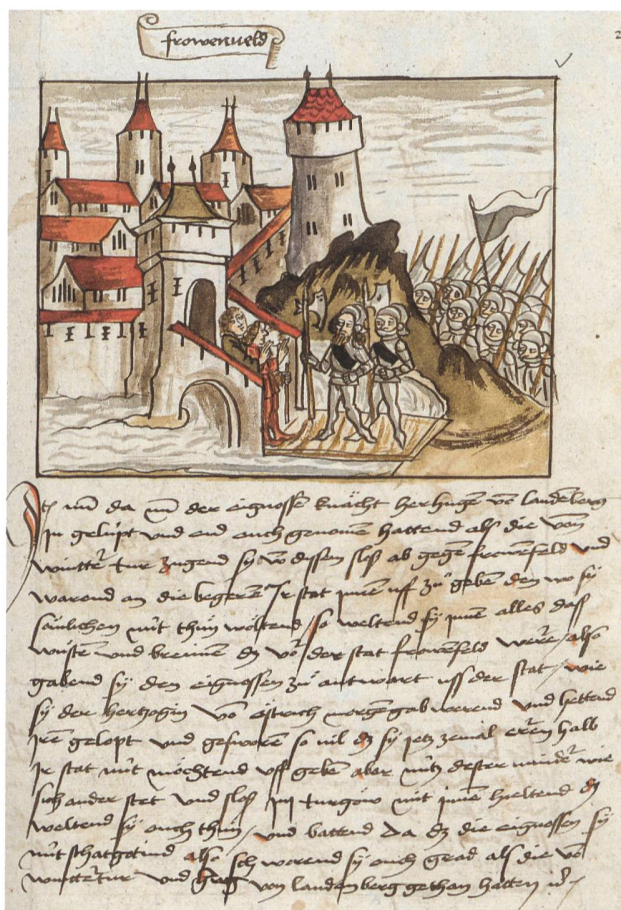 frowenveld
2
Jtem nun da nun der eignossen knächt her hugen von landenberg
jn gelüpt und eid auch genomen hattend als die von
wintertur zugend sy von dissem slos ab gegen frowenfeld und
warond an die begeren jr stat jnen uff zu geben den wo sy
sölichen nüt thun wöltend / so weltend sy jnen alles das
wüsten und brennen dz vor der stat frowenfeld were / also
gabend sy den eignossen zu antwurt uss der stat / wie
sy der hertzogin von östrich morgengab werend und hettend
jren gelopt und gesworen so vil dz sy jetz zemal eren halb
jr stat nüt möchtend uff geben aber nütz dester minder wie
sich ander stet und slos jm turgöw mit jnen hieltend dz
weltend sy ouch thun / und battend da dz die eignossen sy
nüt schatgotind also schworend sy ouch grad als die von
wintertur und von landenberg gethan hatten